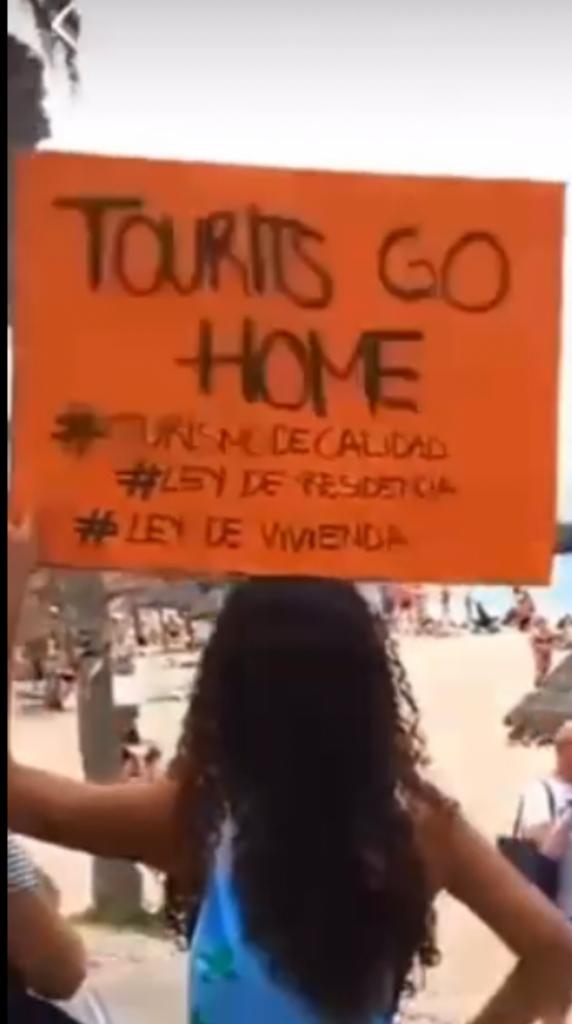 TOURITS GO
HOME
#TURISMO DE CALIDAD
#LEY DE RESIDENCIA
#LEY DE VIVIENDA